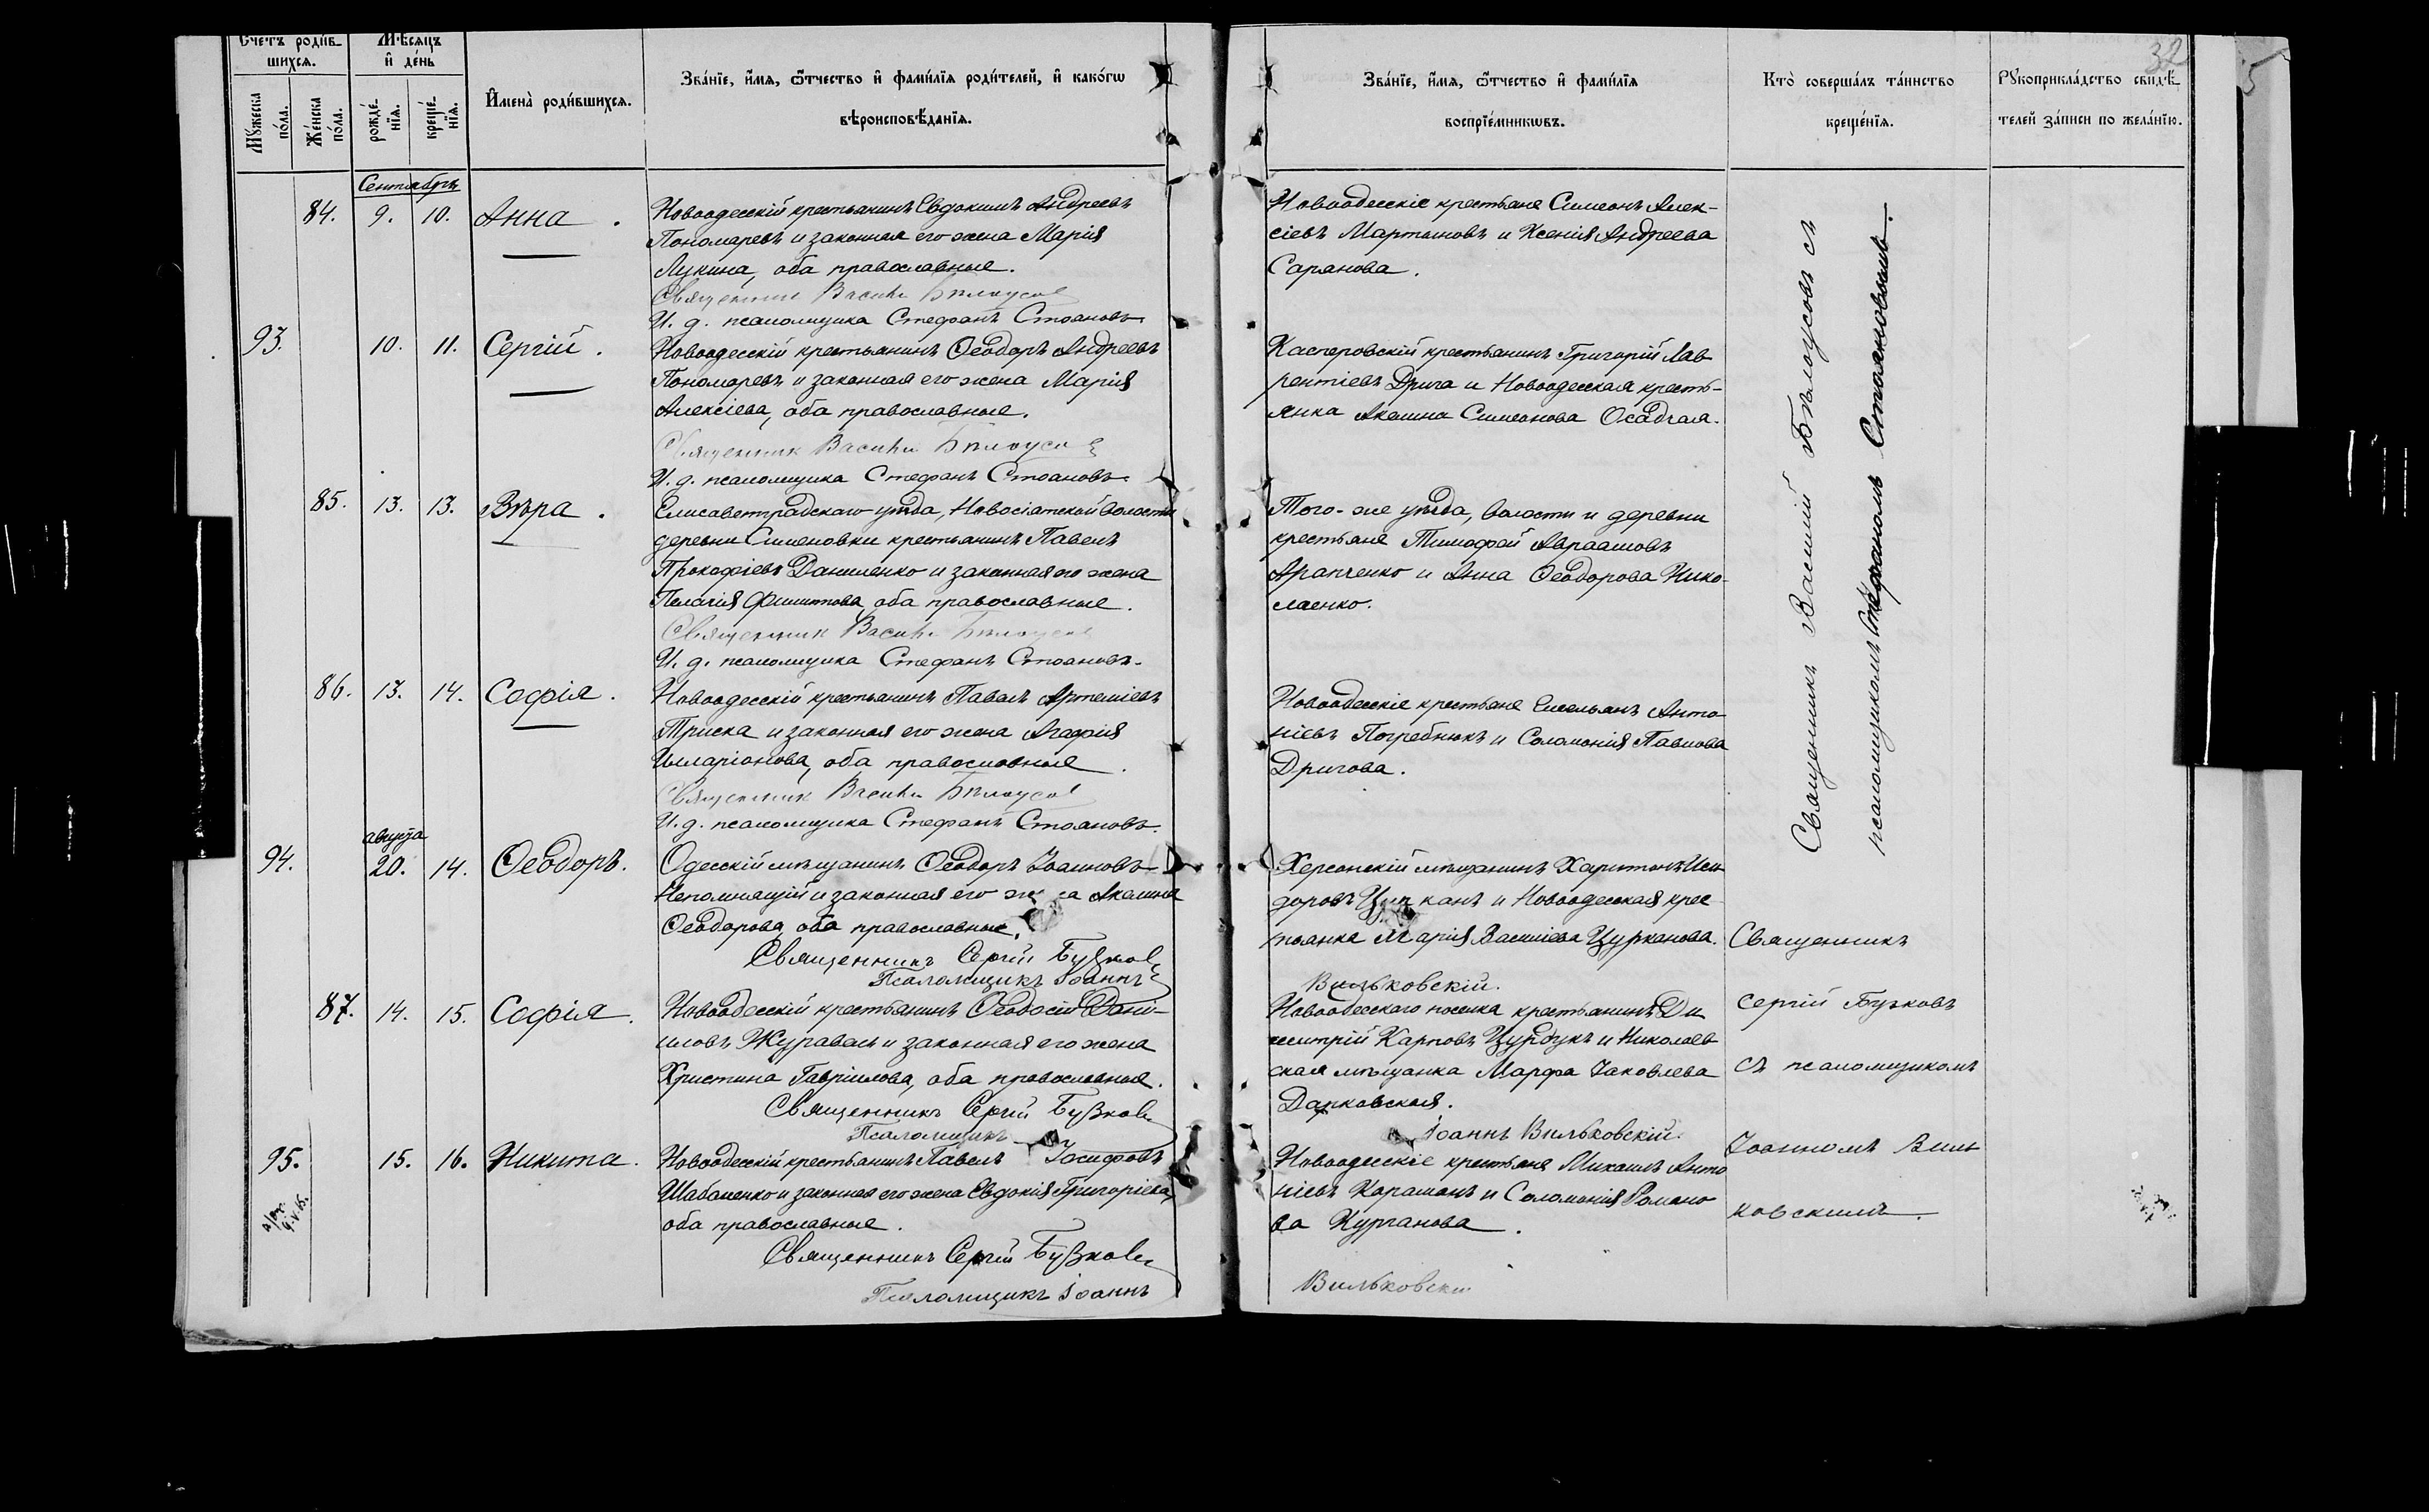 Счетъ роди́в-
шихсѧ.
Мѣсѧцъ
и҆ де́нь
Мꙋжеска
по́ла.
Же́нска
по́ла.
рожде́-
нїѧ.
креще́-
нїѧ.
И҆мена̀ роди́вшихсѧ.
Зва́нїе, и҆́мѧ, ѻ҆́тчество и҆ фами́лїѧ роди́телей, и҆ како́гѡ
вѣроисповѣ́данїѧ.
Зва́нїе, и҆́мѧ, ѻ҆́тчество и҆ фами́лїѧ
воспрїе́мникѡвъ.
Кто̀ соверша́лъ та́инство
креще́нїѧ.
Рꙋкоприкла́дство свидѣ́-
телей за́писи по жела́нїю.
32
5
Сентябрь
84. 9. 10. Анна.
Новоодесскій крестьянинъ Евдокимъ Андреевъ
Пономаревъ и законная его жена Марія
Лукина, оба православные.
Священникъ Василій Бѣлоусовъ
И. д. псаломщика Стефанъ Стояновъ.
Новоодесскіе крестьяне Симеонъ Алек-
сіевъ Мартыновъ и Ксенія Андреева
Сарянова.
93. 10. 11. Сергій.
Новоодесскій крестьянинъ Ѳеодоръ Андреевъ
Пономаревъ и законная его жена Марія
Алексіева, оба православные.
Священникъ Василій Бѣлоусовъ
И. д. псаломщика Стефанъ Стояновъ.
Касперовскій крестьянинъ Григорій Лав-
рентіевъ Дрига и Новоодесская кресть-
янка Акилина Симеонова Осадчая.
85. 13. 13. Вѣра.
Елисаветградскаго уѣзда, Новосіатской волости
деревни Сименовки крестьянинъ Павелъ
Прокофіевъ Даниленко и законная его жена
Пелагія Филиппова, оба православные.
Священникъ Василій Бѣлоусовъ
И. д. псаломщика Стефанъ Стояновъ.
Того-же уѣзда, волости и деревни
крестьяне Тимофей Авраамовъ
Арапченко и Анна Ѳеодорова Нико-
лаенко.
86. 13. 14. Софія.
Новоодесскій крестьянинъ Павелъ Артеміевъ
Триска и законная его жена Агафія
Илларіонова, оба православные.
Священникъ Василій Бѣлоусовъ
И. д. псаломщика Стефанъ Стояновъ.
Новоодесскіе крестьяне Емельянъ Анто-
ніевъ Погребнюкъ и Соломонія Павлова
Дригова.
Священникъ Василій Бѣлоусовъ съ
псаломщикомъ Стефаномъ Стояновымъ.
августа
94. 20. 14. Ѳеодоръ.
Одесскій мѣщанинъ Ѳеодоръ Іоанновъ
Непомнящій и законная его жена Акилина
Ѳеодорова, оба православные.
Священникъ Сергій Бузковъ
Псаломщикъ Іоаннъ
Херсонскій мѣщанинъ Харитонъ Иси-
доровъ Цурканъ и Новоодесская крес-
тьянка Марія Василіева Цурканова.
Вильковскій.
87. 14. 15. Софія.
Новоодесскій крестьянинъ Ѳеодосій Дані-
иловъ Журавель и законная его жена
Христина Гавріилова, оба православные.
Священникъ Сергій Бузковъ
Псаломщикъ
Новоодесскаго посёлка крестьянинъ Ди-
митрій Карповъ Цурдукъ и Николаев-
ская мѣщанка Марфа Іаковлева
Дарковская.
Іоаннъ Вильковскій.
95. 15. 16. Никита.
Новоодесскій крестьянинъ Павелъ Іосифовъ
Шабаненко и законная его жена Евдокія Григоріева,
оба православные.
Священникъ Сергій Бузковъ
Псаломщикъ Іоаннъ
Новоодесскіе крестьяне Михаилъ Анто-
ніевъ Караманъ и Соломонія Романо-
ва Курганова.
Вильковскій
Священникъ
Сергій Бузковъ
съ псаломщикомъ
Іоанномъ Виль-
ковскимъ.